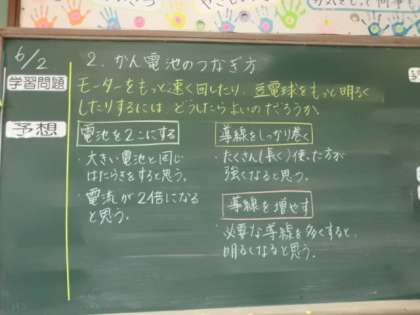 6/2
2. かん電池のつなぎ方
学習問題
モーターをもっと速く回したり、豆電球をもっと明るく
したりするには どうしたらよいのだろうか。
予想
電池を2こにする
・大きい電池と同じ
はたらきをすると思う。
・電流が2倍になる
と思う。
導線をしっかり巻く
・たくさん(長く)使った方が
強くなると思う。
導線を増やす
・必要な導線を多くすると、
明るくなると思う。